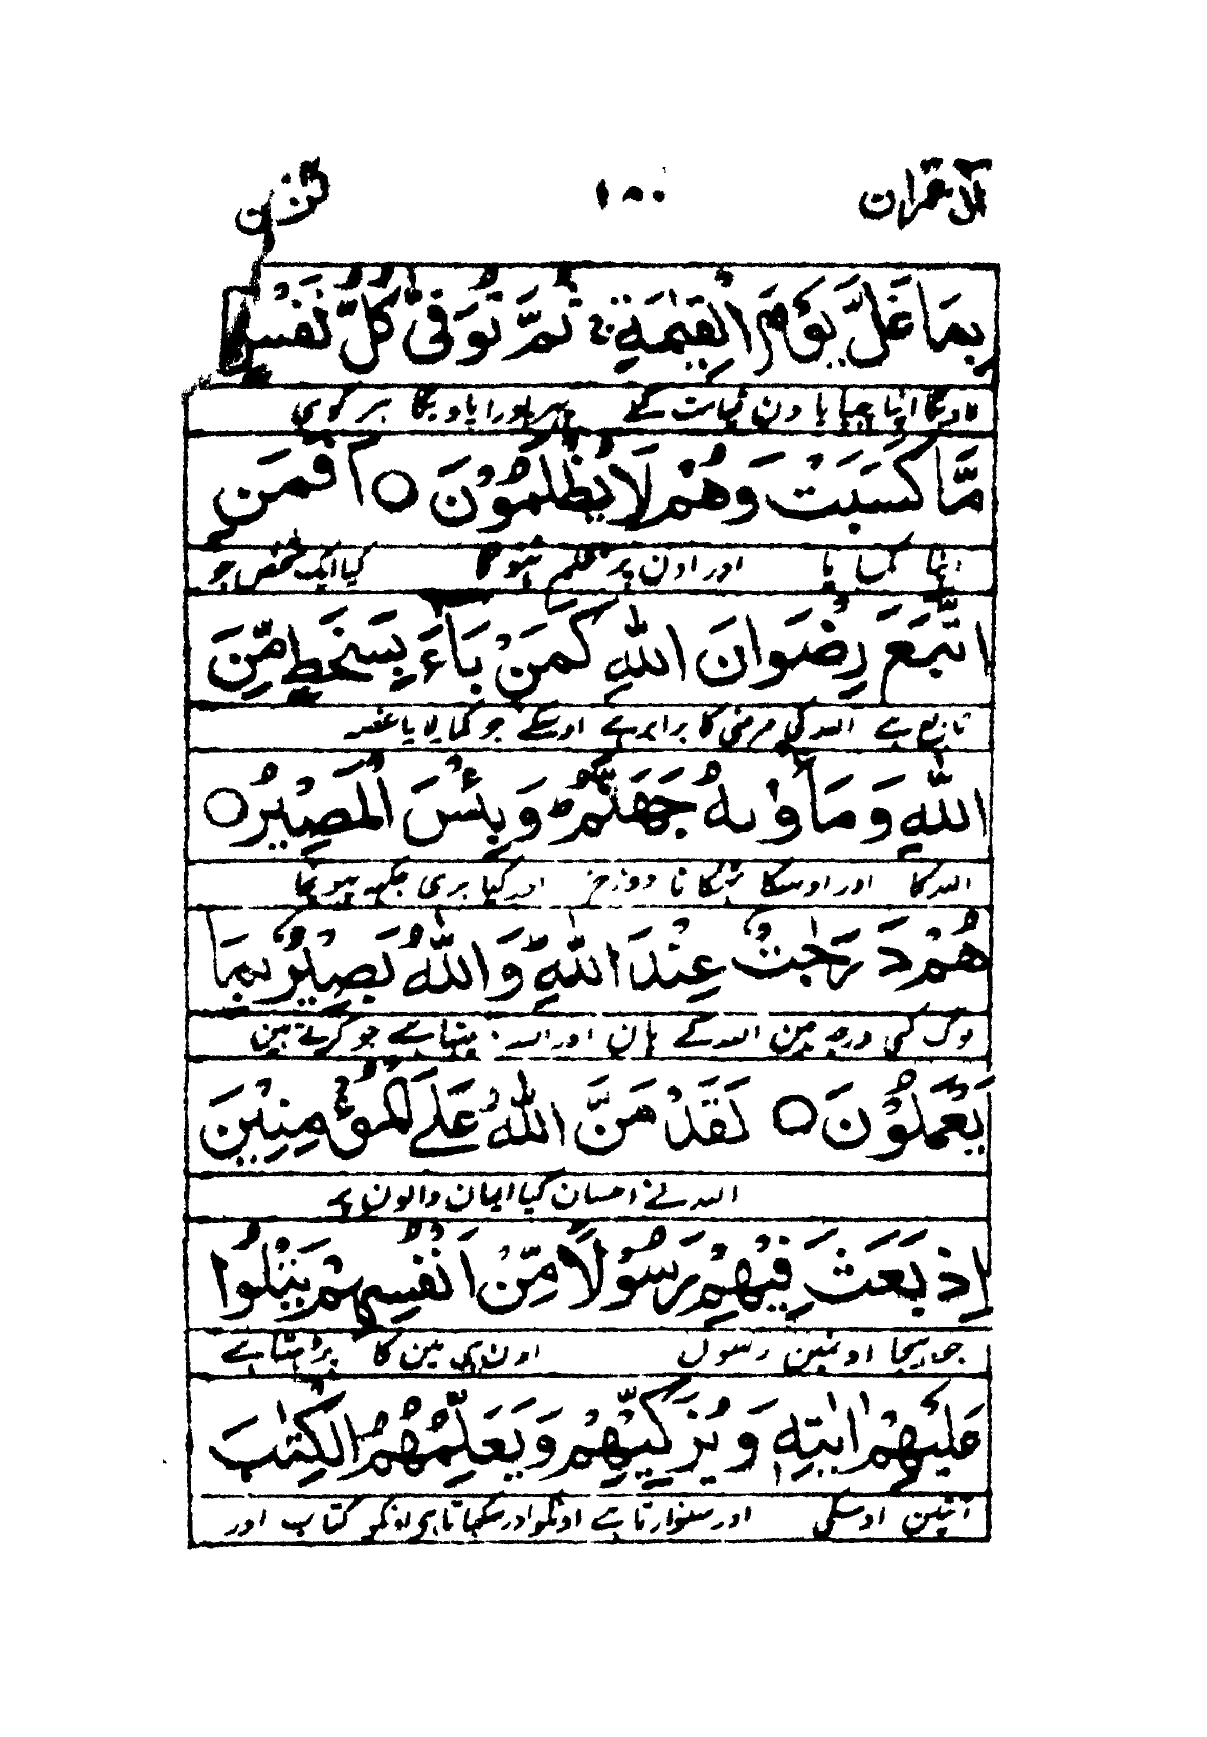 آل عمران ١٥٠ لن تن
بِمَا غَلَّ يَوْمَ الْقِيٰمَةِ ۚ ثُمَّ تُوَفّٰى كُلُّ نَفْسٍ
اپنا چھپایا دن قیامت کے پھر پورا پاویگا ہر کوی
مَّا كَسَبَتْ وَهُمْ لَا يُظْلَمُوْنَ ○ اَفَمَنِ
اپنا کمایا اور اون پر ظلم نہوگا کیا ایک شخص جو
اتَّبَعَ رِضْوَانَ اللّٰهِ كَمَنْۢ بَآءَ بِسَخَطٍ مِّنَ
تابع ہے اللہ کی مرضی کا برابر ہے اوسکے جو کما لایا غصہ
اللّٰهِ وَمَاْوٰىهُ جَهَنَّمُ ؕ وَبِئْسَ الْمَصِيْرُ ○
اللہ کا اور اوسکا ٹھکانا دوزخ اور کیا بری جگہ پہونچا
هُمْ دَرَجٰتٌ عِنْدَ اللّٰهِ ؕ وَاللّٰهُ بَصِيْرٌۢ بِمَا
لوگ کئی درجہ ہین اللہ کے ہان اور اللہ دیکھتا ہے جو کرتے ہین
يَعْمَلُوْنَ ○ لَقَدْ مَنَّ اللّٰهُ عَلَى الْمُؤْمِنِيْنَ
اللہ نے احسان کیا ایمان والون پر
اِذْ بَعَثَ فِيْهِمْ رَسُوْلًا مِّنْ اَنْفُسِهِمْ يَتْلُوْا
جو بھیجا اونمین رسول اون ہی مین کا پڑھتا ہے
عَلَيْهِمْ اٰيٰتِهٖ وَيُزَكِّيْهِمْ وَيُعَلِّمُهُمُ الْكِتٰبَ
آیتین اوسکی اور سنوارتا ہے اونکو اور سکھاتا ہی اونکو کتاب اور